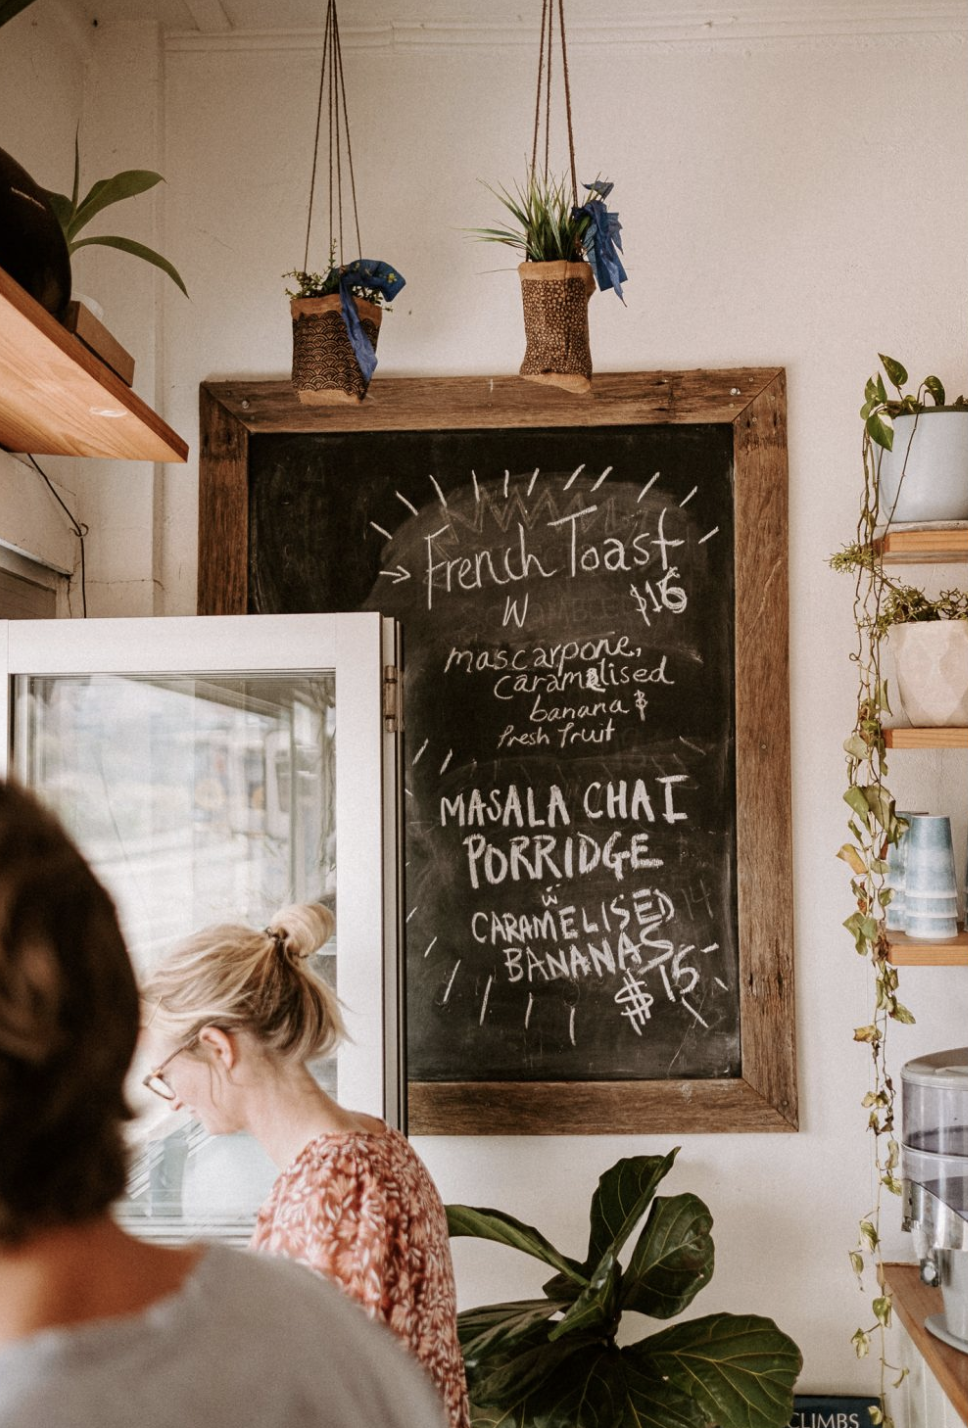 French Toast
$16
W
mascarpone,
caramelised
banana &
fresh fruit
MASALA CHAI
PORRIDGE
w
CARAMELISED
BANANAS
$15
CLIMBS